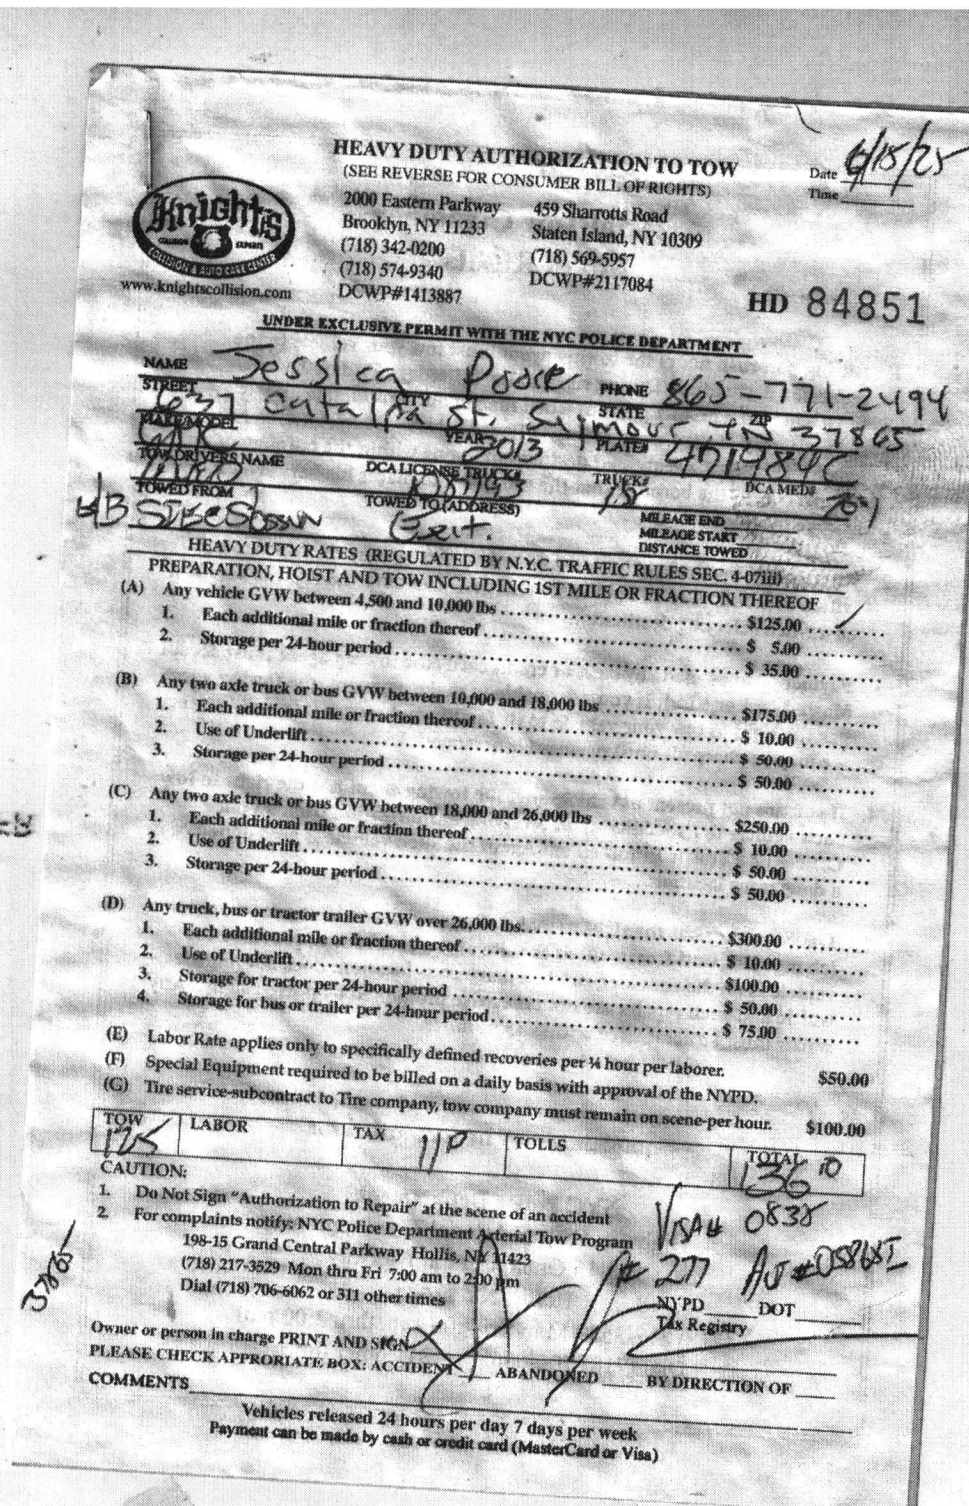 HEAVY DUTY AUTHORIZATION TO TOW
(SEE REVERSE FOR CONSUMER BILL OF RIGHTS)
Date 6/15/25
Time
Knights
COLLISION EXPERTS
COLLISION & AUTO CARE CENTER
www.knightscollision.com
2000 Eastern Parkway
Brooklyn, NY 11233
(718) 342-0200
(718) 574-9340
DCWP#1413887
459 Sharrotts Road
Staten Island, NY 10309
(718) 569-5957
DCWP#2117084
HD 84851
UNDER EXCLUSIVE PERMIT WITH THE NYC POLICE DEPARTMENT
NAME Jessica PHONE 865-771-2494
STREET CITY STATE ZIP
637 Catalpa St. Seymour TN 37865
MAKE/MODEL GMC YEAR 2013 PLATE#
TOW DRIVERS NAME DCA LICENSE TRUCK# TRUCK# 18 DCA MED#
TOWED FROM TOWED TO (ADDRESS) Exit.
MILEAGE END
MILEAGE START
DISTANCE TOWED
HEAVY DUTY RATES (REGULATED BY N.Y.C. TRAFFIC RULES SEC. 4-07iii)
PREPARATION, HOIST AND TOW INCLUDING 1ST MILE OR FRACTION THEREOF
(A) Any vehicle GVW between 4,500 and 10,000 lbs $125.00
1. Each additional mile or fraction thereof $ 5.00
2. Storage per 24-hour period $ 35.00
(B) Any two axle truck or bus GVW between 10,000 and 18,000 lbs $175.00
1. Each additional mile or fraction thereof $ 10.00
2. Use of Underlift $ 50.00
3. Storage per 24-hour period $ 50.00
(C) Any two axle truck or bus GVW between 18,000 and 26,000 lbs $250.00
1. Each additional mile or fraction thereof $ 10.00
2. Use of Underlift $ 50.00
3. Storage per 24-hour period $ 50.00
(D) Any truck, bus or tractor trailer GVW over 26,000 lbs. $300.00
1. Each additional mile or fraction thereof $ 10.00
2. Use of Underlift $100.00
3. Storage for tractor per 24-hour period $ 50.00
4. Storage for bus or trailer per 24-hour period $ 75.00
(E) Labor Rate applies only to specifically defined recoveries per ¼ hour per laborer. $50.00
(F) Special Equipment required to be billed on a daily basis with approval of the NYPD.
(G) Tire service-subcontract to Tire company, tow company must remain on scene-per hour. $100.00
TOW 125 LABOR TAX 11 10 TOLLS TOTAL 136 10
CAUTION:
1. Do Not Sign "Authorization to Repair" at the scene of an accident
2. For complaints notify: NYC Police Department Arterial Tow Program
198-15 Grand Central Parkway Hollis, NY 11423
(718) 217-3529 Mon thru Fri 7:00 am to 2:00 pm
Dial (718) 706-6062 or 311 other times
VISA# 0838
# 277
37865
NYPD DOT
Tax Registry
Owner or person in charge PRINT AND SIGN X
PLEASE CHECK APPRORIATE BOX: ACCIDENT ABANDONED BY DIRECTION OF
COMMENTS
Vehicles released 24 hours per day 7 days per week
Payment can be made by cash or credit card (MasterCard or Visa)